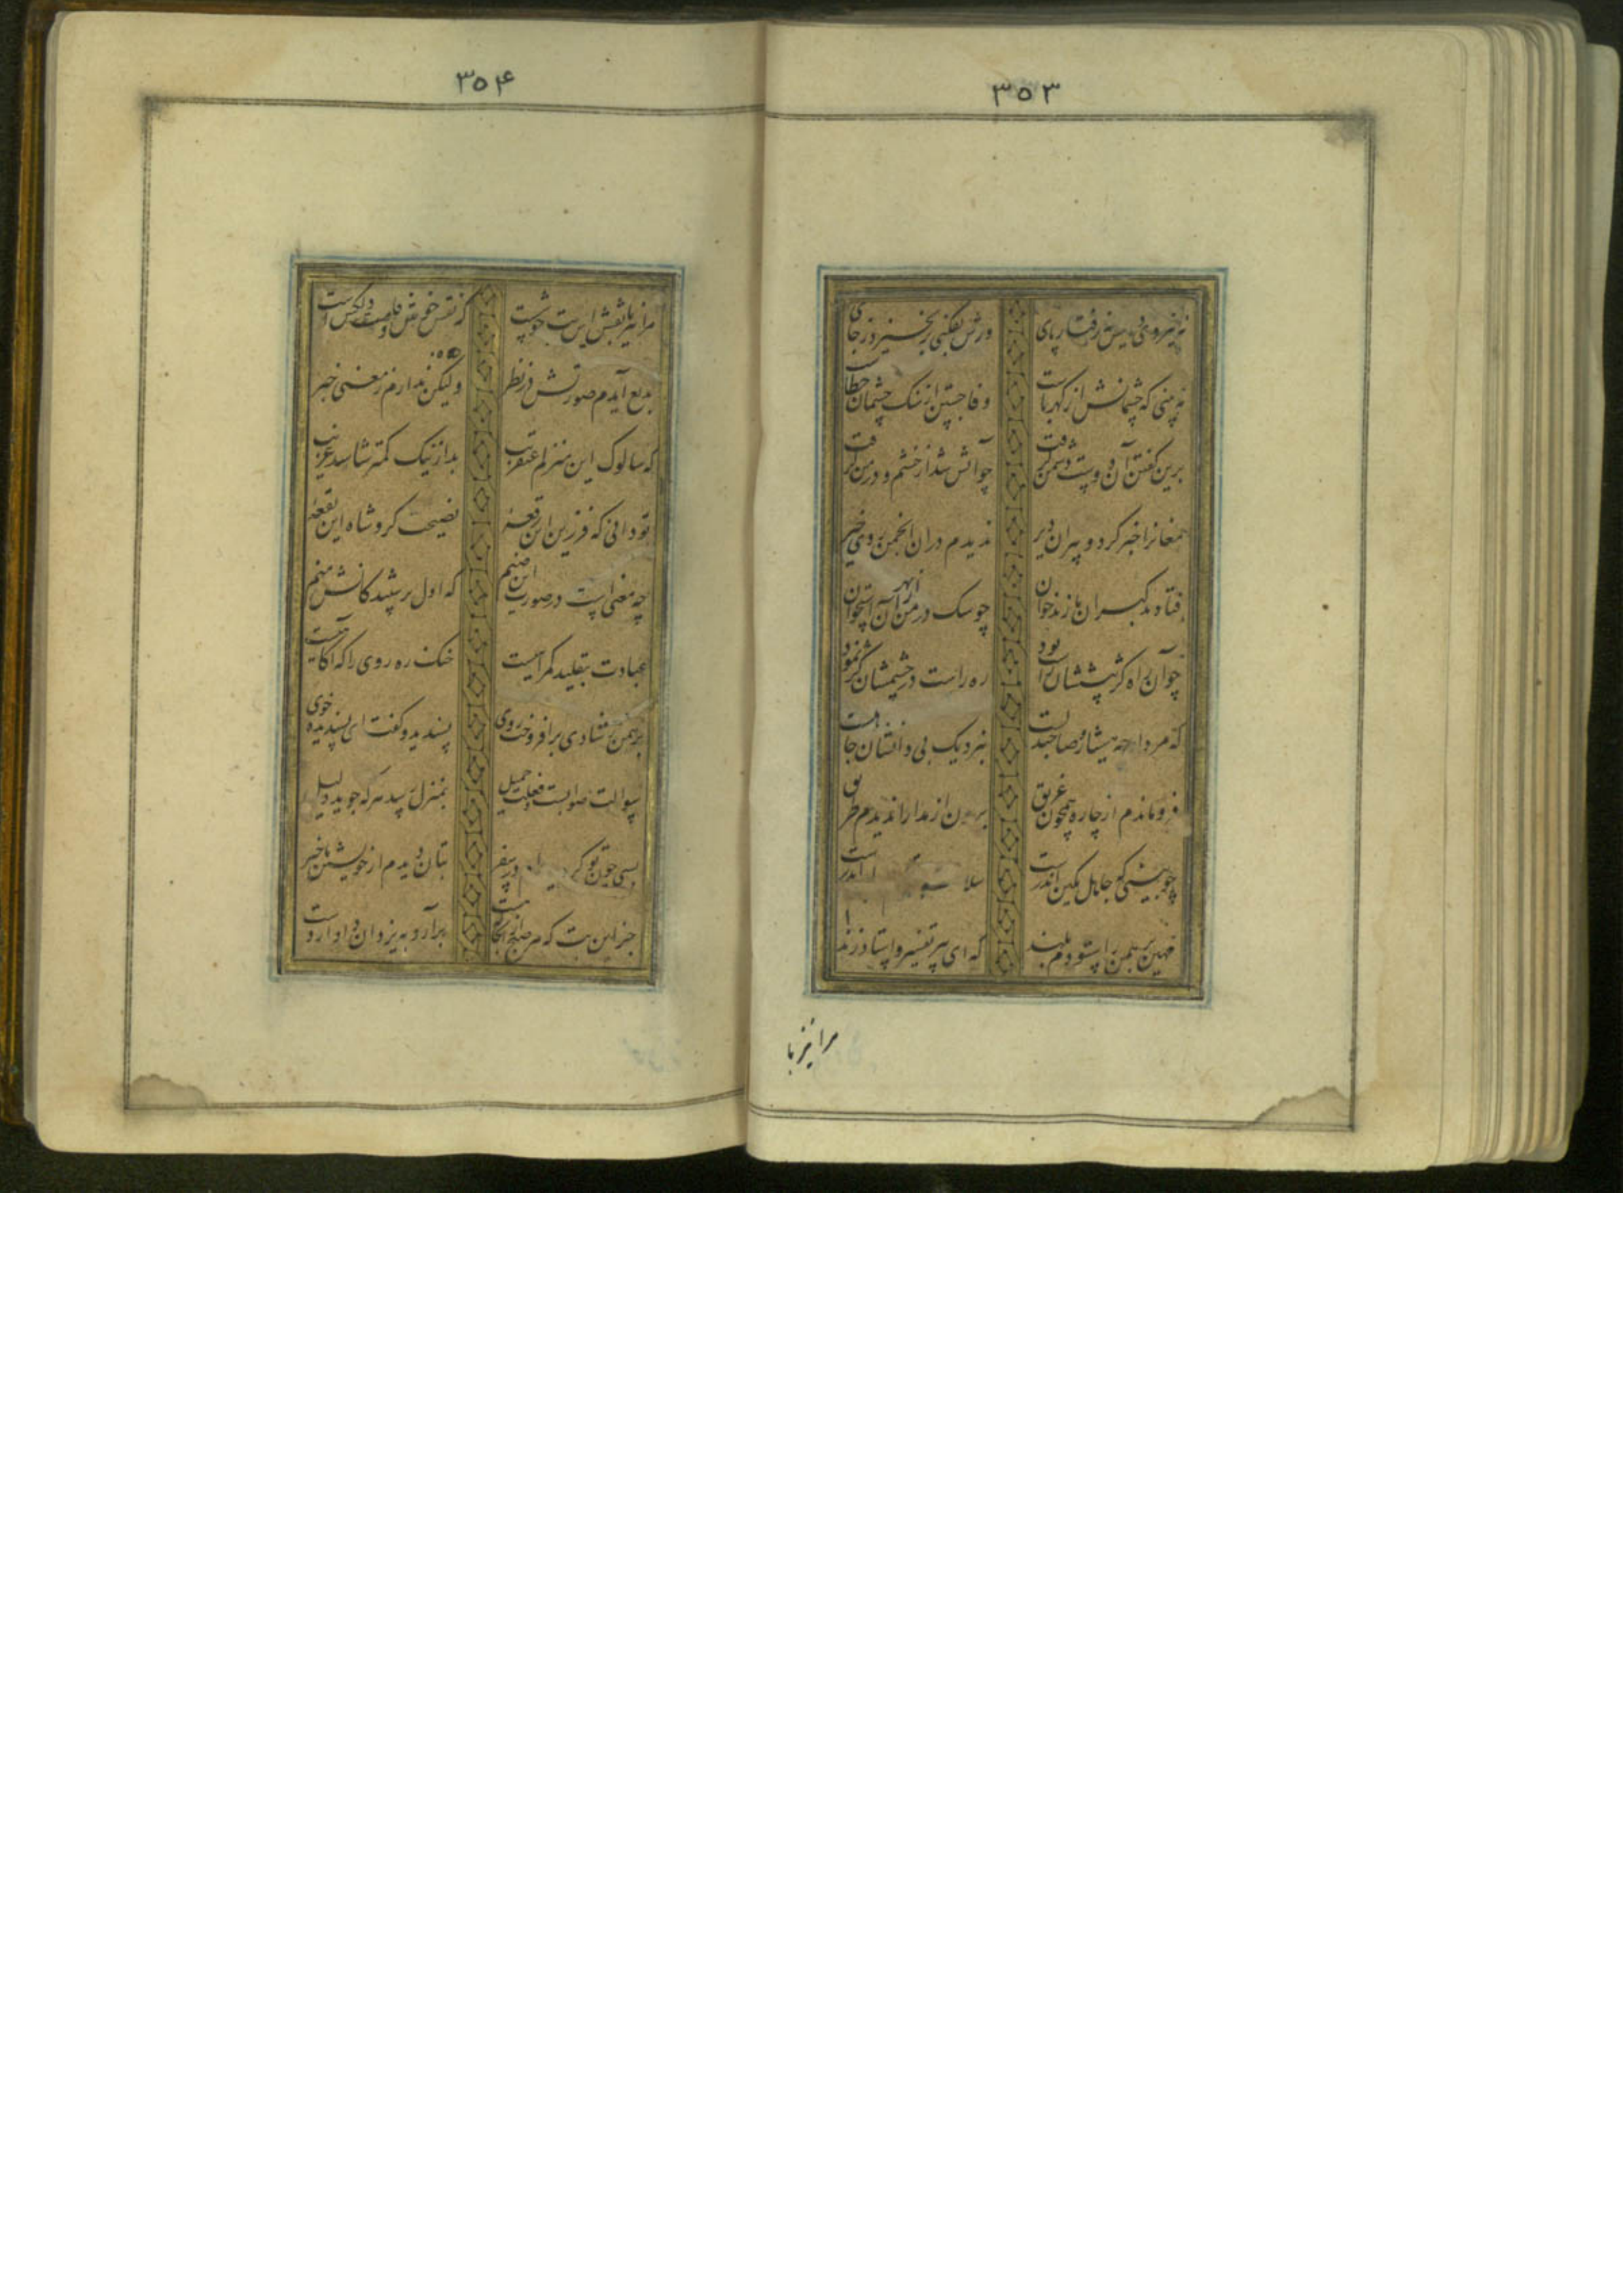 ۳۵۳
نه نیروی دستش نه رفتار پای ورش بفکنی برنخیزد ز جای
نه بینی که چشمانش از کهرباست وفا جستن از سنک چشمان خطاست
برین کفتن آن دوست دشمن گرفت چو آتش شد از خشم و در من گرفت
مغانرا خبر کرد و پیران دیر ندیدم دران انجمن روی خیر
فتادند کبران پازند خوان چو سک در من از بهر آن استخوان
چو آن راه کژ پیششان راست بود ره راست در چشمشان کژ نمود
که مرد ار چه بیناد و صاحبدلست بنزدیک بی دانشان جاهلست
فروماندم از چاره همچون غریق برون از مدارا ندیدم طریق
چو بینی که جاهل بکین اندرست سلا اندرست
مهین برهمن را ستودم بلند که ای پیر تفسیر و استاد زند
مرا نیز با
۳۵۴
مرا نیز با نقش این بت خوشست که نقش خوش و قامت دلکش است
بدیع آیدم صورتش در نظر ولیکن ندارم ز معنی خبر
که سالوک این منزلم عنقریب بد از نیک کمتر شناسد غریب
تو دانی که فرزین این رقعهٔ نصیحت کر و شاه این بقعهٔ
چه معنی است در صورت این صنم که اول پرستندکانش منم
عبادت بتقلید کمراهیست خنک ره روی را که آکاهیست
برهمن ز شادی برافروخت روی پسندید و کفت ای پسندیده خوی
سوالت صوابست و فعلت جمیل بمنزل رسد هرکه جوید دلیل
بسی چون تو کردیدم اندر سفر بتان دیدم از خویشتن باخبر
جز این بت که هر صبح از اینجا که هست برآرد به یزدان دادار دست